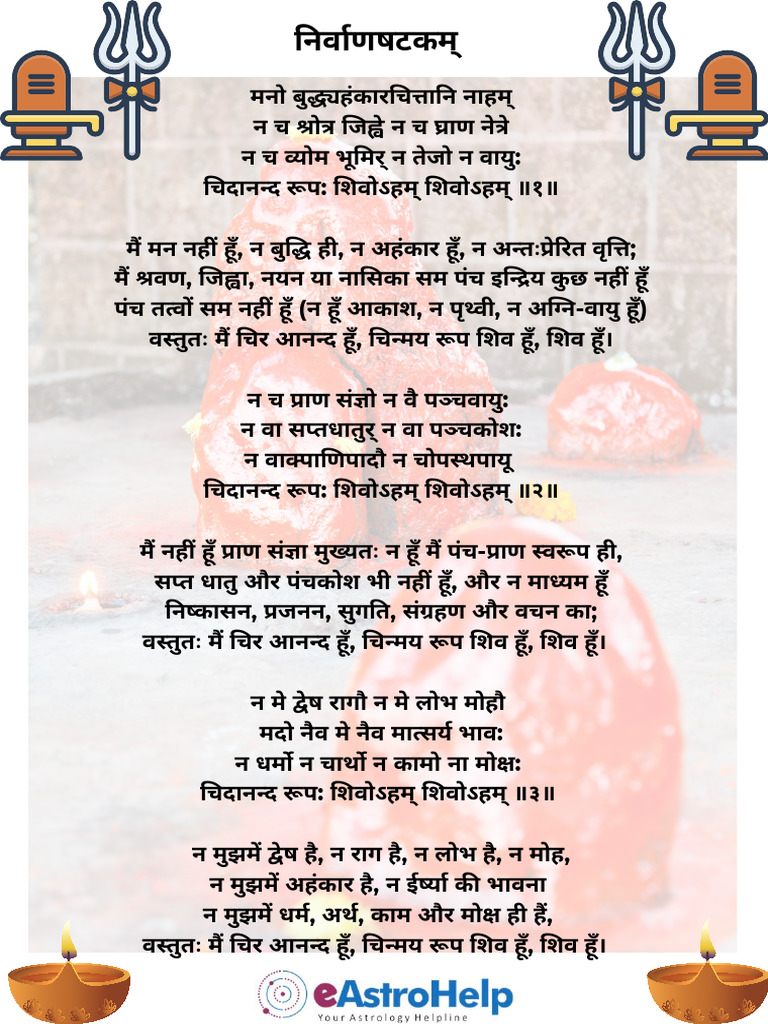 निर्वाणषटकम्
मनो बुद्ध्यहंकारचित्तानि नाहम्
न च श्रोत्र जिह्वे न च घ्राण नेत्रे
न च व्योम भूमिर् न तेजो न वायु:
चिदानन्द रूप: शिवोऽहम् शिवोऽहम् ॥१॥
मैं मन नहीं हूँ, न बुद्धि ही, न अहंकार हूँ, न अन्तःप्रेरित वृत्ति;
मैं श्रवण, जिह्वा, नयन या नासिका सम पंच इन्द्रिय कुछ नहीं हूँ
पंच तत्वों सम नहीं हूँ (न हूँ आकाश, न पृथ्वी, न अग्नि-वायु हूँ)
वस्तुतः मैं चिर आनन्द हूँ, चिन्मय रूप शिव हूँ, शिव हूँ।
न च प्राण संज्ञो न वै पञ्चवायु:
न वा सप्तधातुर् न वा पञ्चकोश:
न वाक्पाणिपादौ न चोपस्थपायू
चिदानन्द रूप: शिवोऽहम् शिवोऽहम् ॥२॥
मैं नहीं हूँ प्राण संज्ञा मुख्यतः न हूँ मैं पंच-प्राण स्वरूप ही,
सप्त धातु और पंचकोश भी नहीं हूँ, और न माध्यम हूँ
निष्कासन, प्रजनन, सुगति, संग्रहण और वचन का;
वस्तुतः मैं चिर आनन्द हूँ, चिन्मय रूप शिव हूँ, शिव हूँ।
न मे द्वेष रागौ न मे लोभ मोहौ
मदो नैव मे नैव मात्सर्य भाव:
न धर्मो न चार्थो न कामो ना मोक्ष:
चिदानन्द रूप: शिवोऽहम् शिवोऽहम् ॥३॥
न मुझमें द्वेष है, न राग है, न लोभ है, न मोह,
न मुझमें अहंकार है, न ईर्ष्या की भावना
न मुझमें धर्म, अर्थ, काम और मोक्ष ही हैं,
वस्तुतः मैं चिर आनन्द हूँ, चिन्मय रूप शिव हूँ, शिव हूँ।
eAstroHelp
Your Astrology Helpline